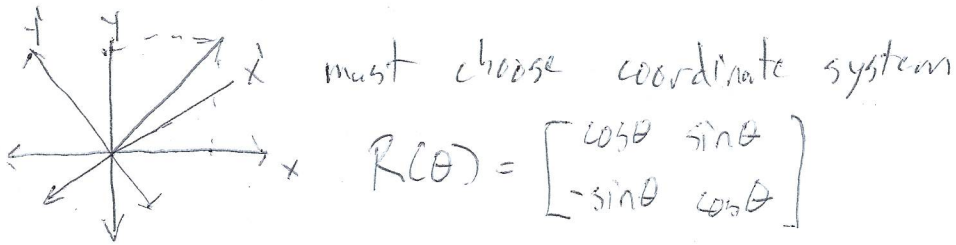 y' y
x' must choose coordinate system
x R(θ) = [cosθ sinθ
-sinθ cosθ]